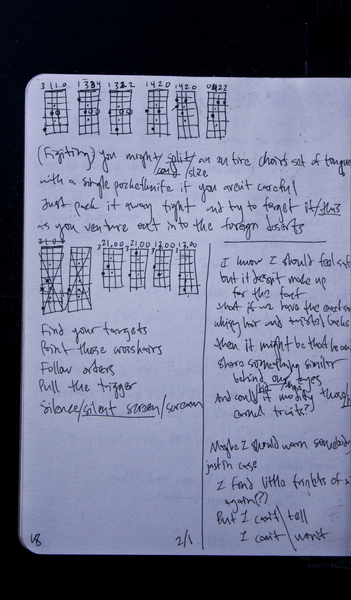 3 1 1 0 1 3 3 4 1 3 2 2 1 4 2 0 1 4 2 0 0 4 2 2
(Figiting) you might/split/an entire choirs set of tongues
/size
with a single pocketknife if you aren't careful
Just pack it away tight and try to forget it/this
as you venture out into the foreign deserts
2 1 0 0 2 1 0 0 2 1 0 0 1 2 0 0 1 3 0 0
Find your targets
Point those crosshairs
Follow orders
Pull the trigger
Silence/silent screen/scream
I know I should feel safe
but it doesn't make up
for the fact
what if we have the exact same
wispy hair and twisted
then it might be that he can
share something similar
behind our eyes
And could it modify those
carnal traits?
Maybe I should warn somebody
just in case
I find little triplets of
again(?)
But I can't/tell
I can't/won't
18
2/1